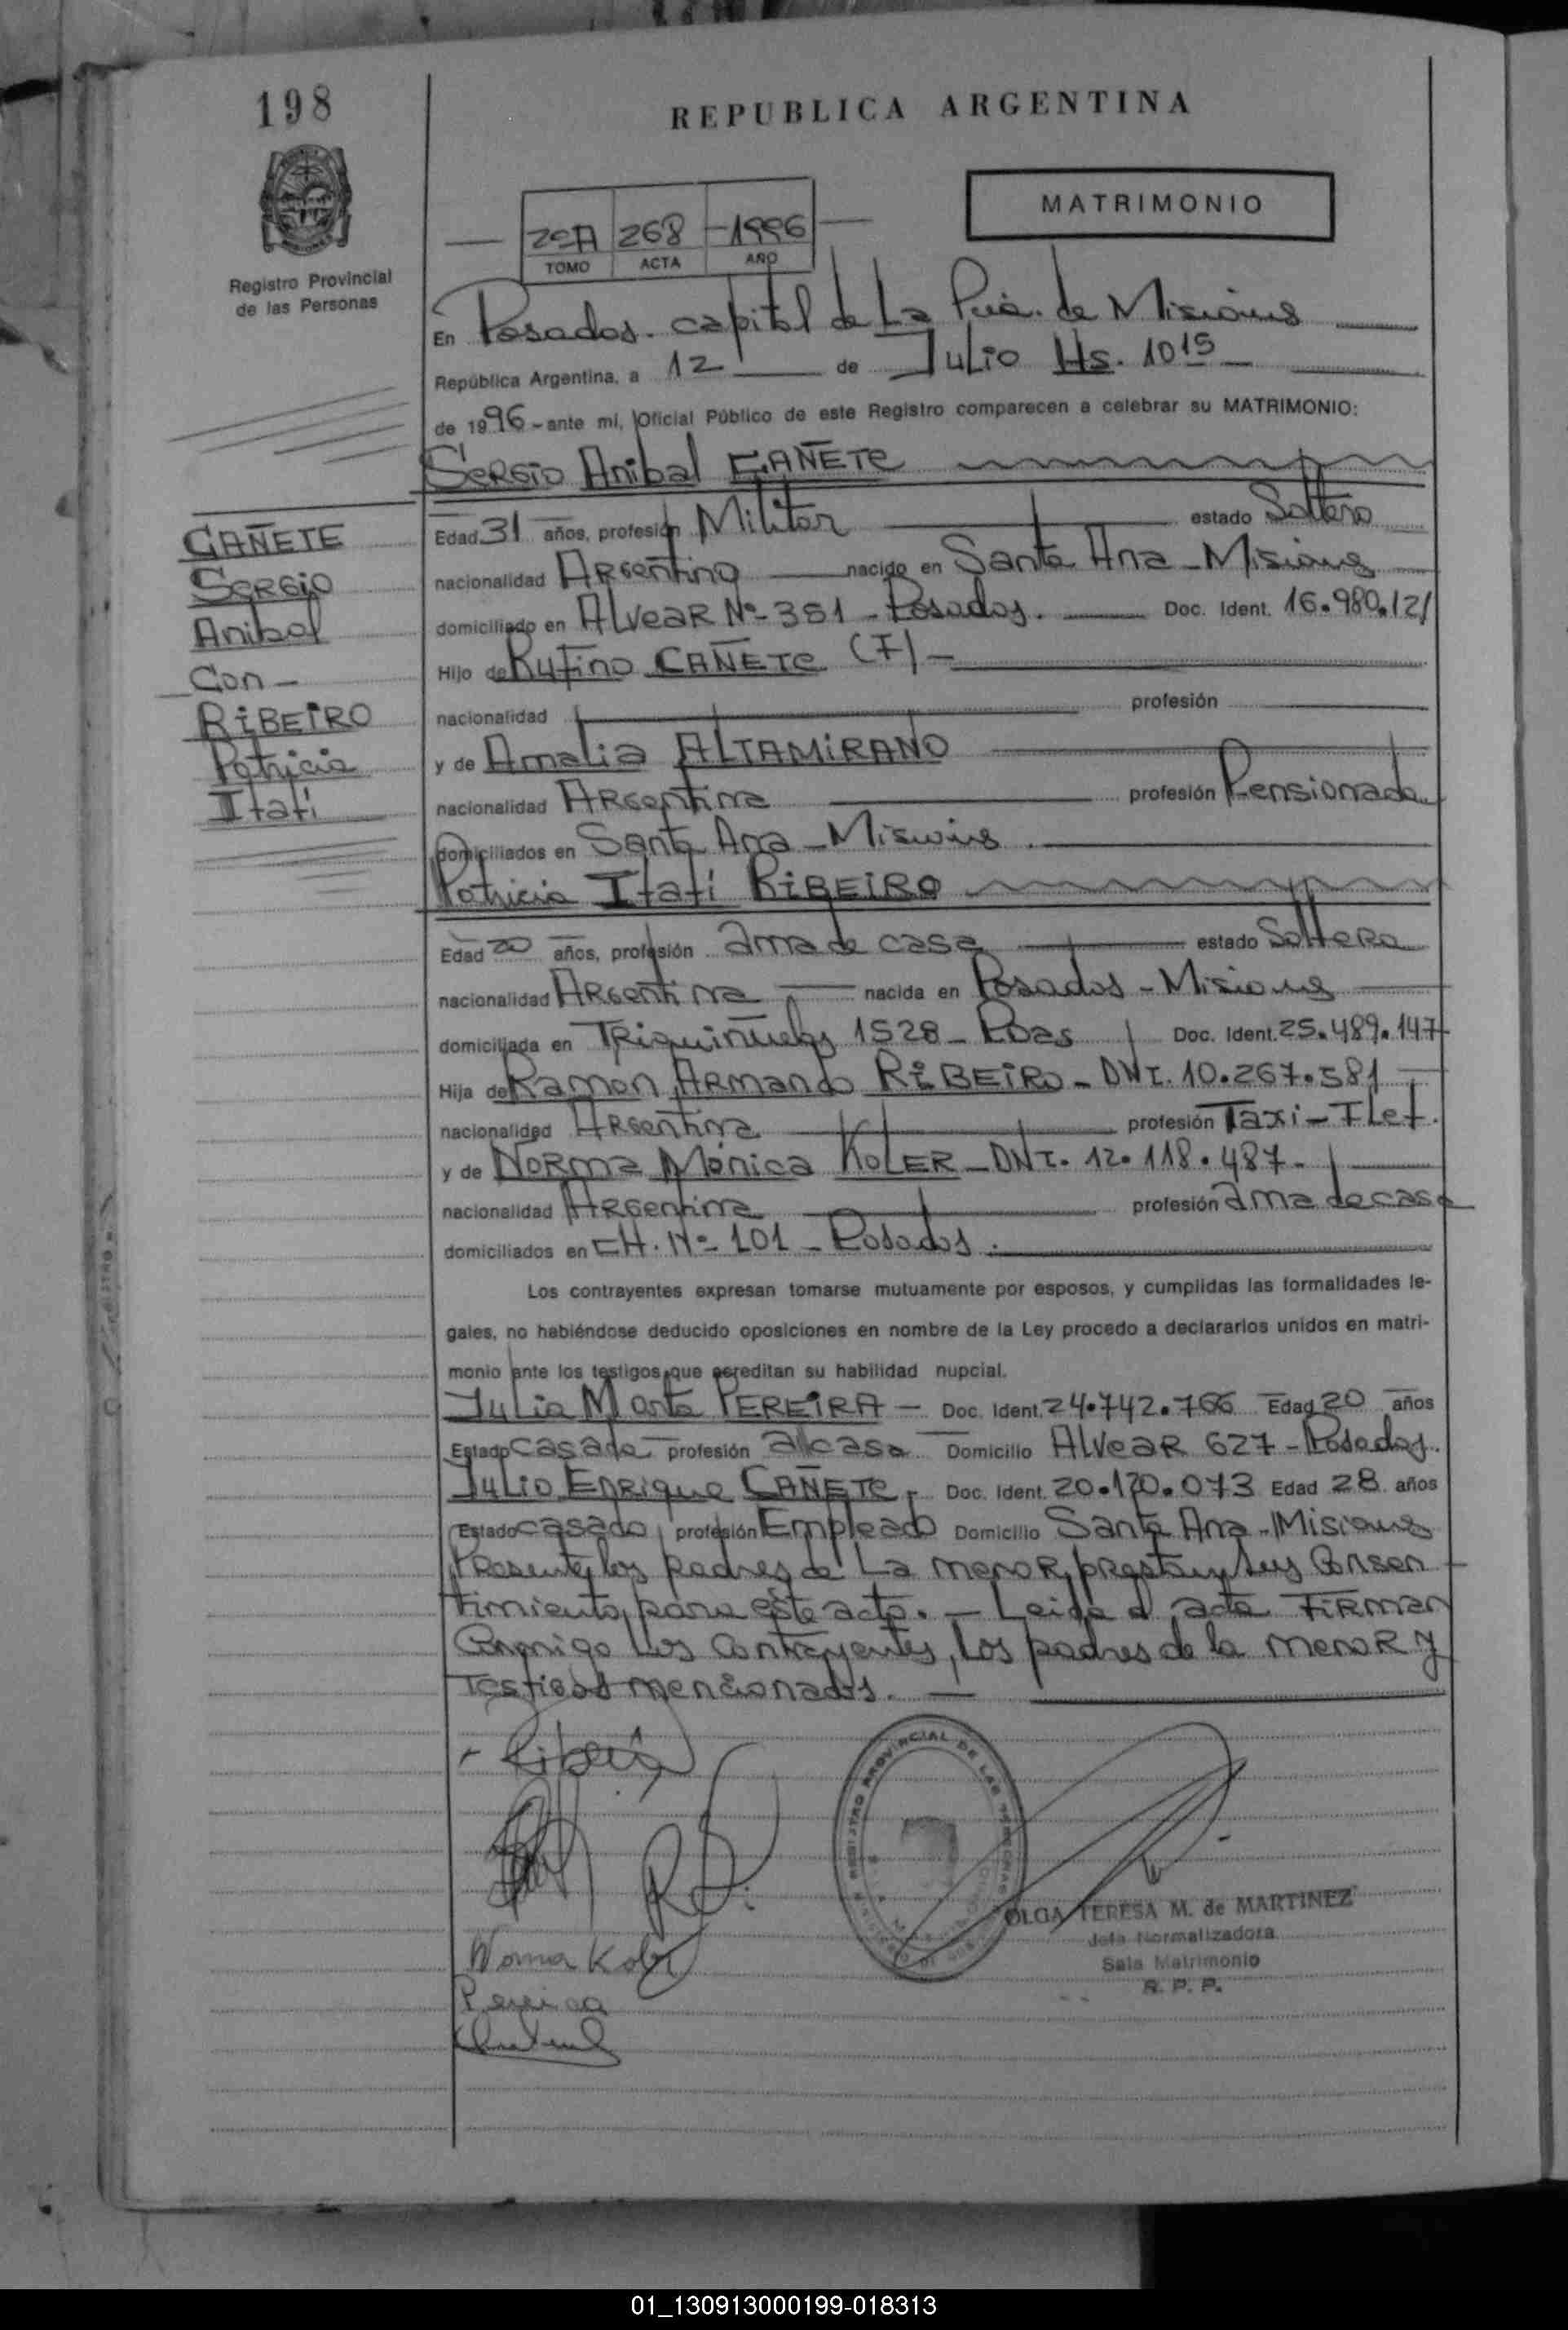 198
REPUBLICA ARGENTINA
MATRIMONIO
2ºA 268 -1996
TOMO ACTA AÑO
Registro Provincial
de las Personas
En Posadas. capital de La Pcia. de Misiones
República Argentina, a 12 de Julio Hs. 10 15
de 1996 - ante mi, Oficial Público de este Registro comparecen a celebrar su MATRIMONIO:
Sergio Anibal CAÑETE
CAÑETE
Sergio
Anibal
Con -
RIBEIRO
Patricia
Itatí
Edad 31 años, profesión Militar estado Soltero
nacionalidad Argentino nacido en Santa Ana - Misiones
domiciliado en Alvear Nº 381 - Posadas. Doc. Ident. 16.980.121
Hijo de Rufino CAÑETE (F) -
nacionalidad profesión
y de Amalia ALTAMIRANO
nacionalidad Argentina profesión Pensionada
domiciliados en Santa Ana - Misiones.
Patricia Itatí RIBEIRO
Edad 20 años, profesión ama de casa estado Soltera
nacionalidad Argentina nacida en Posadas - Misiones
domiciliada en Triquiñuelas 1528 - Pdas Doc. Ident. 25.489.147
Hija de Ramón Armando RIBEIRO - DNI. 10.267.581
nacionalidad Argentina profesión Taxi - Flet.
y de Norma Mónica KOLER - DNI. 12.118.487.
nacionalidad Argentina profesión ama de casa
domiciliados en CH. Nº 101 - Posadas.
Los contrayentes expresan tomarse mutuamente por esposos, y cumplidas las formalidades le-
gales, no habiéndose deducido oposiciones en nombre de la Ley procedo a declararlos unidos en matri-
monio ante los testigos que acreditan su habilidad nupcial.
Julia Marta PEREIRA - Doc. Ident. 24.742.766 Edad 20 años
Estado casada profesión a/casa Domicilio Alvear 627 - Posadas.
Julio Enrique CAÑETE - Doc. Ident. 20.120.073 Edad 28 años
Estado casado profesión Empleado Domicilio Santa Ana - Misiones
Presente los padres de La menor, prestan sus Consen-
timiento para este acto. - Leida el acta FIRMAN
Conmigo Los Contrayentes, Los padres de la menor y
Testigos mencionados. -
Ribeiro
REGISTRO PROVINCIAL DE LAS PERSONAS
OLGA TERESA M. de MARTINEZ
Jefa Normalizadora
Sala Matrimonio
R. P. P.
Norma Koler
Pereira
01_130913000199-018313